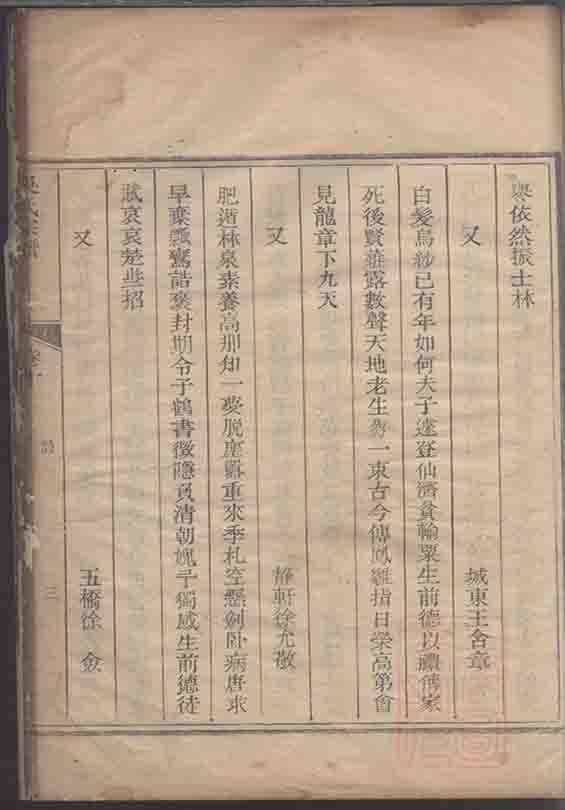 譽依然振士林
又 城東王含章
白髮烏紗已有年如何夫子遽登仙濟貧輸粟生前德以禮傳家
死後賢薤露數聲天地老生芻一束古今傳鳳雛指日榮高第會
見龍章下九天
又 靜軒徐允敬
肥遁林泉素養高那知一夢脫塵囂重來季札空懸劍卧病唐求
早棄瓢鸞誥褒封期令子鶴書徵隱負清朝媿予獨感生前德徒
賦哀哀楚些招
又 五橋徐僉
詩
三